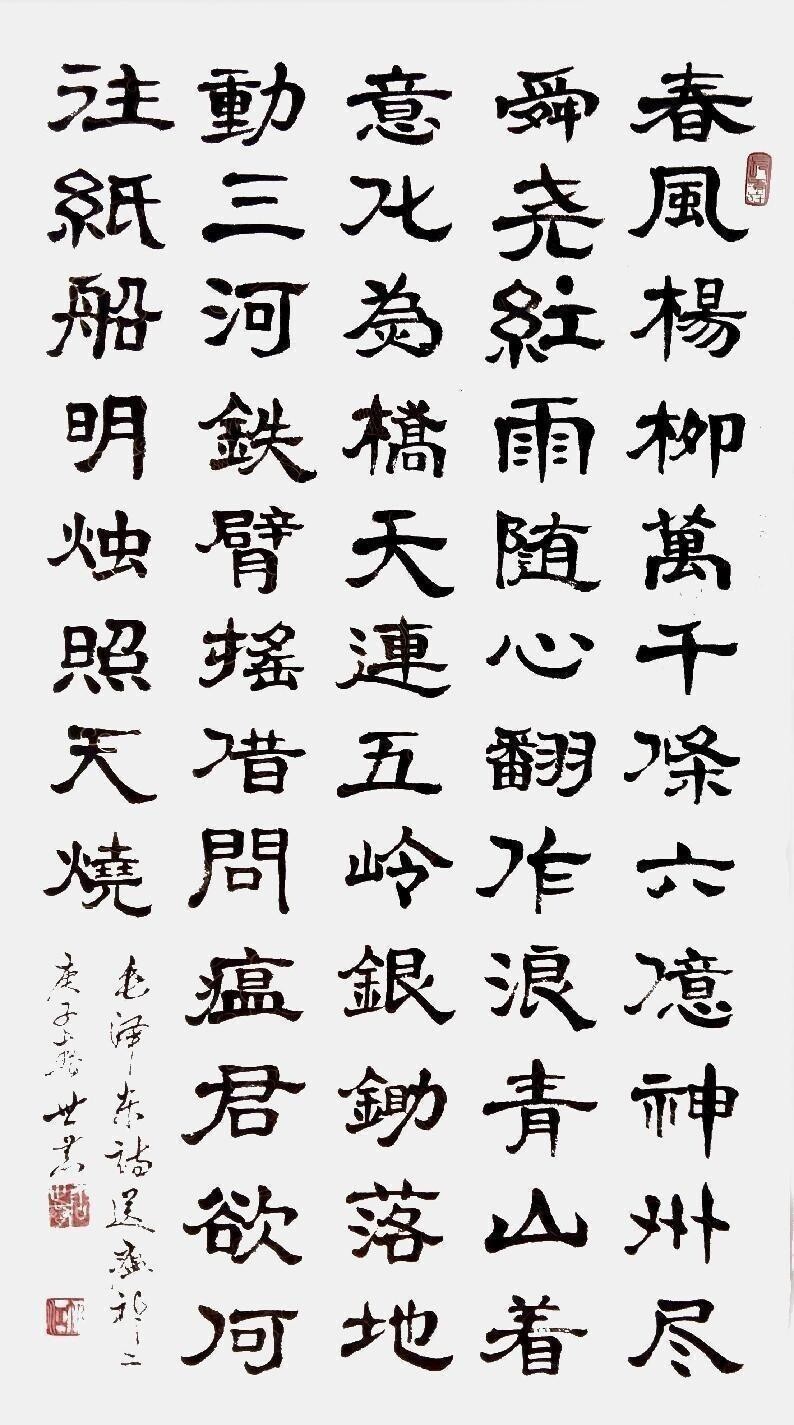 春風楊柳萬千條六億神州尽
舜尧紅雨随心翻作浪青山着
意化為橋天連五岭銀鋤落地
動三河鉄臂摇借問瘟君欲何
往紙船明烛照天燒
毛泽东詩送瘟神二
庚子春世